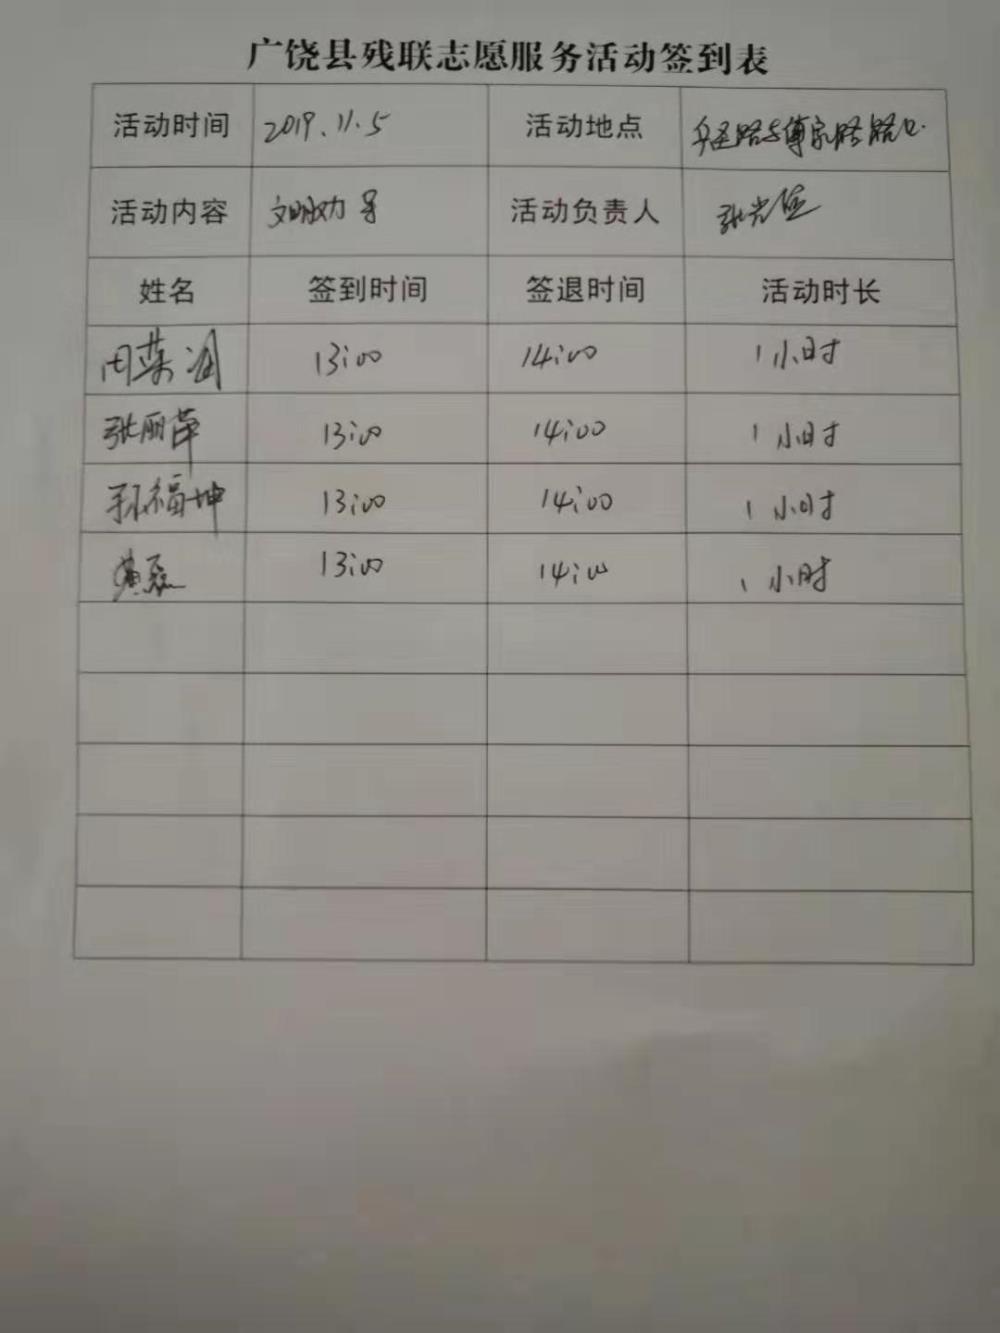 广饶县残联志愿服务活动签到表
活动时间 2019.11.5 活动地点 兵圣路与傅家路路口
活动内容 文明劝导 活动负责人 张光
姓名 签到时间 签退时间 活动时长
周荣 13:00 14:00 1小时
张丽萍 13:00 14:00 1小时
孙福坤 13:00 14:00 1小时
黄磊 13:00 14:00 1小时